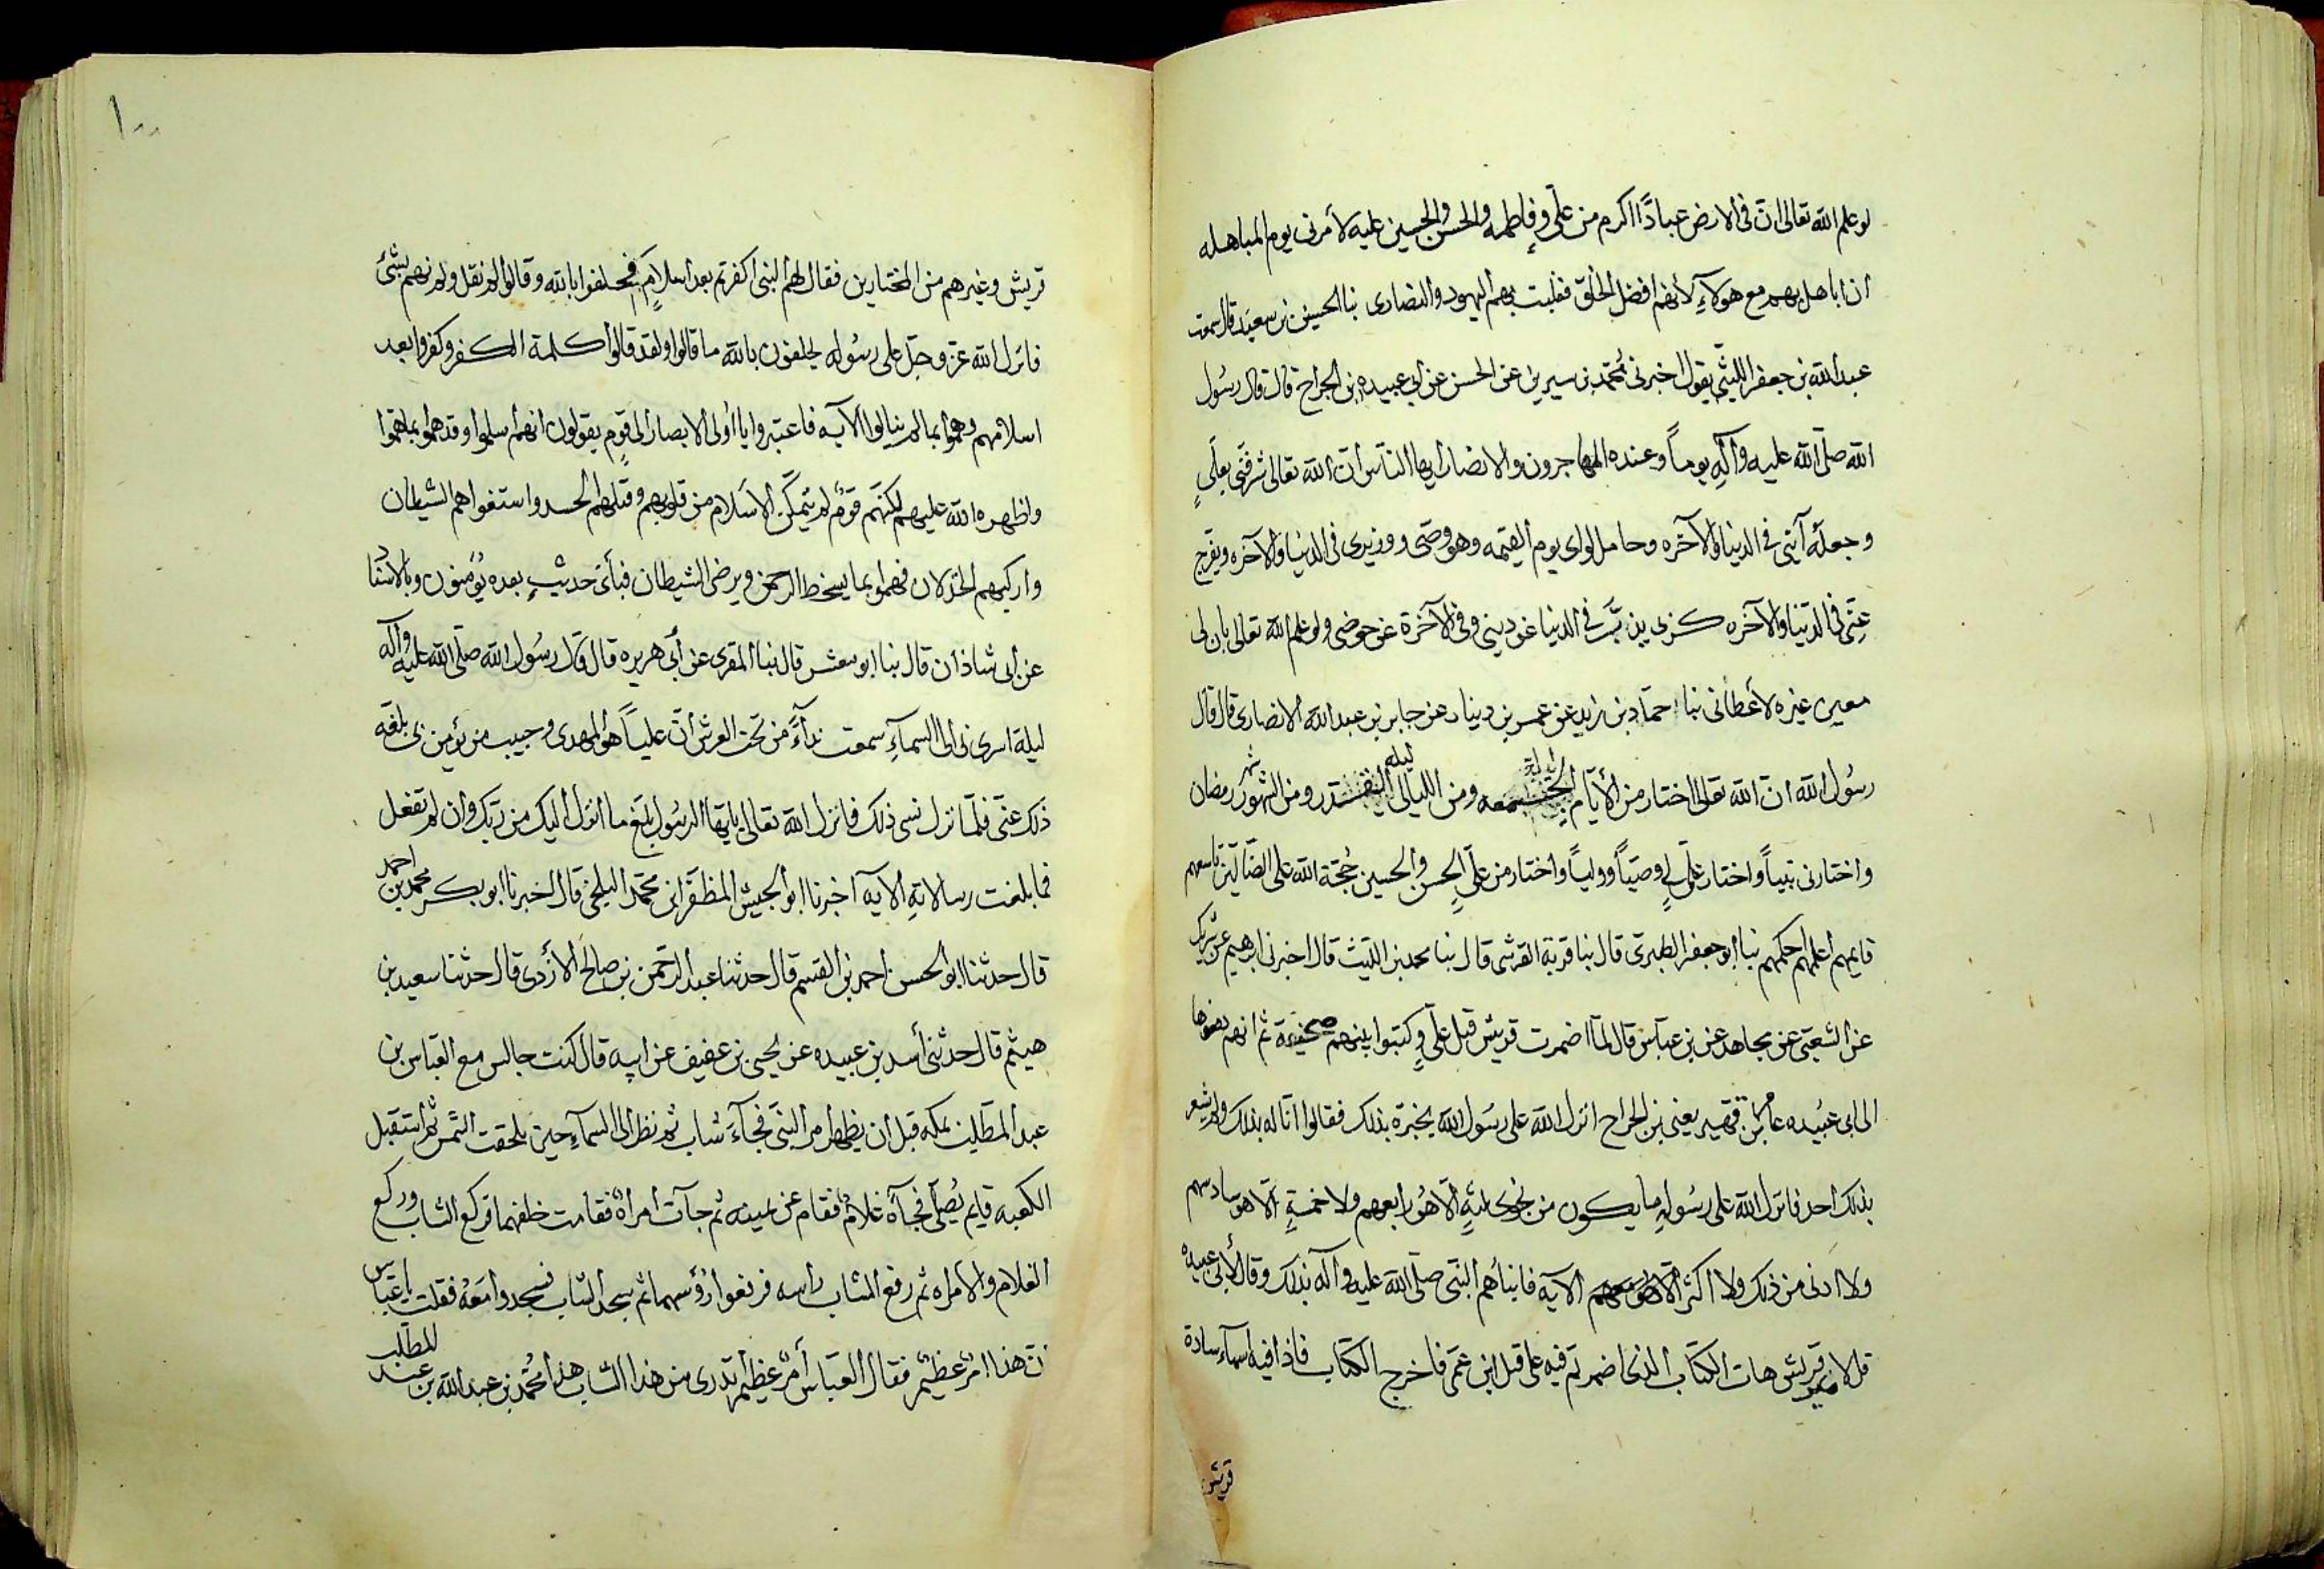 لو علم الله تعالى ان في الارض عبادًا اكرم من علي وفاطمه والحسن والحسين عليه لأمرنى يوم المباهله
ان اباهل بهم مع هولآءِ لأنهم افضل الخلق فغلبت بهم اليهود والنصارى نبا الحسين بن سعيد قال سمعت
عبد الله بن جعفر الليثي يقول اخبرني محمّد بن سيرين عن الحسن عن ابي عبيده بن الجراح قال قال رسُول
الله صلّى الله عليه وآلِه يوماً وعنده المهاجرون والانصار ايها الناس ان الله تعالى شرفنى بعليٍ
وجعله آيتي في الدنيا والآخره وحامل لواى يوم القيمه وهو وصى ووزيرى فى الدنيا والآخره ويفرج
عنّى في الدّنيا والآخره كربى يذبّ في الدنيا عن دينى وفى الآخرة عن حوضى ولو علم الله تعالى بان لى
معين غيره لأعطانى نبا حمّاد بن زيد عن عمر بن دينار عن جابر بن عبد الله الانصارى قال قال
رسُول الله ان الله تعالى اختار من الأيّام الجمعه ومن الليالى ليله القدر ومن الشهور شهر رمضان
واختارنى نبياً واختار علي لي وصيّاً ووليّاً واختار من علي الحسن والحسين حُجّة الله على الضّالّين تاسعهم
قايمهم اعلمهم احكمهم نبا ابو جعفر الطبرى قال نبا قرية القرشى قال نبا محمد بن الليث قال اخبرنى ابرهيم عن شريك
عن الشعبى عن مجاهد عن بن عبّاس قال لمّا اضمرت قريش قبل علي وكتبوا بينهم صحيفة ثم انهم دفعوها
الى ابى عبُيده عامر بن فهير يعنى بن الجراح انزل الله على رسُول الله يخبره بذلك فقالوا انّا له بذلك ولم يشعر
بذلك احد فانزل الله على رسُوله ما يكون من نجوى ثلثةٍ الّا هُو رابعهم ولا خمسةٍ الّا هو سادسهم
ولا ادنى من ذلك ولا اكثر الّا هو معهم الآيه فانبأهم النبّى صلّى الله عليه وآله بذلك وقال لأبى عبيده
قريش هات الكتاب الذى اضمرتم فيه على قبل ابن عمّى فاخرج الكتاب فاذا فيه اسمآء سادة
قريش
١٠٠
قريش وغيرهم من المختارين فقال لهم النبى اكفرتم بعد اسلامكم فحلفوا بالله وقالوا لم نقل ولم نهم بشئ
فانزل الله عزّ وجلّ على رسُوله يحلفون بالله ما قالوا ولقد قالوا كلمة الكفر وكفروا بعد
اسلامهم وهمّوا بما لم ينالوا الآيه فاعتبروا يا اُولى الابصار الى قوم يقولون انهم اسلموا وقد همّوا بما همّوا
واظهره الله عليهم لكنّهم قومٌ لم يتمكّن الاسلام من قلوبهم وقتلهم الحسد واستغواهم الشيطان
واركبهم الخذلان فهمّوا بما يسخط الرحمن ويرضى الشيطان فبأىّ حديثٍ بعده يُؤمنون وبالاسناد
عن ابى شاذان قال نبا ابو معشر قال نبا المقرى عن أبى هريره قال قال رسُول الله صلّى الله عليه وآله
ليلة اسرى بى الى السمآءِ سمعت ندآءً من تحت العرش انّ علياً هو الهدى وحبيب من يؤمن بى بلغه
ذلك عنّى فلمّا نزل نسى ذلك فانزل الله تعالى يا ايّها الرسُول بلّغ ما انزل اليك من ربّك وان لم تفعل
فما بلغت رسالاتهِ الآيه اخبرنا ابو الجيش المظفّر ابن محمّد البلخى قال اخبرنا ابو بكر محمد بن احمد
قال حدثنا ابو الحسن احمد بن القسم قال حدثنا عبد الرحمن بن صالح الأزدى قال حدثنا سعيد بن
هيثم قال حدثنى أسد بن عبيده عن يحيى بن عفيف عن ابيه قال كنت جالس مع العبّاس بن
عبد المطلب بمكه قبل ان يظهر امر النبّى فجآءَ شاب ثم نظر الى السمآءِ حين تحلقت الشّمس ثم استقبل
الكعبه قايم يُصلّى فجآءَ غلامٌ فقام عن يمينه ثم جآت امرأةٌ فقامت خلفهما فركع الشاب وركع
الغلام والامراه ثم رفع الشاب راسه فرفعوا رُؤسهما ثم سجد الشاب فسجدوا معهُ فقلت يا عبّاس
انّ هذا امرٌ عظيمٌ فقال العبّاس أمرٌ عظيمٌ تدرى من هذا الشاب هذا محُمّد بن عبد الله بن عبد المطّلب